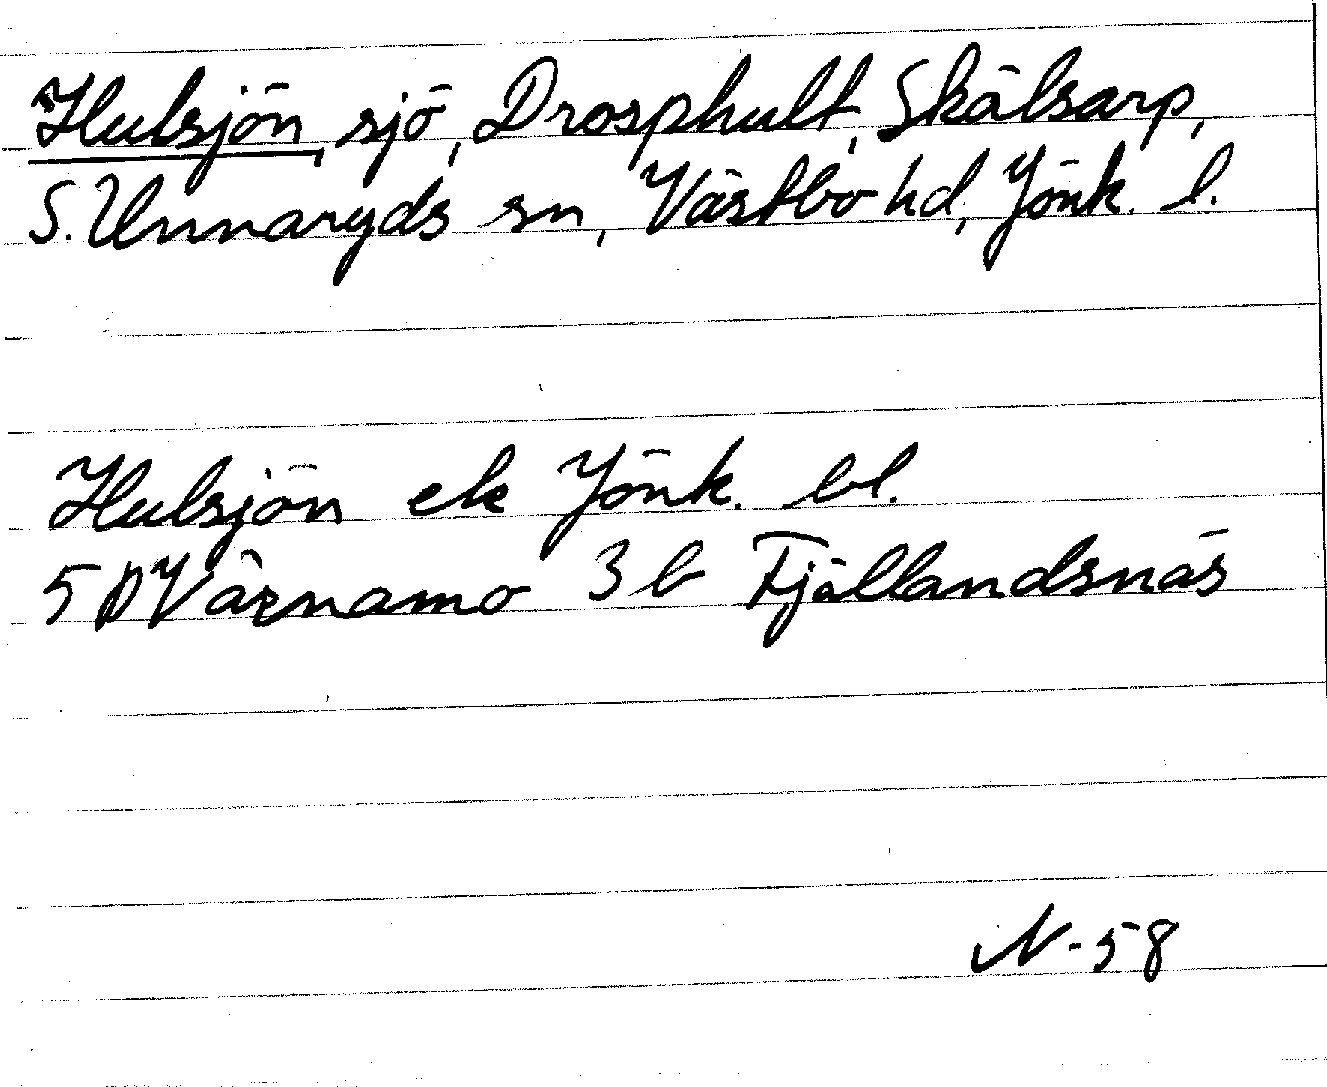 Hulsjön, sjö, Drosphult, Skålsarp,
S. Unnaryds sn, Västbo hd, Jönk. l.
Hulsjön ek Jönk. bl.
5 D Värnamo 3 b Fjällandsnäs
N-58